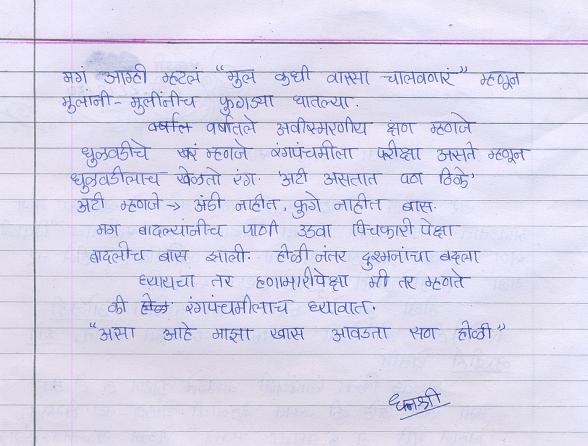 मगं आम्ही म्हटलं "मुलं कुधी वारसा चालवणारं" म्हणून
मुलांनी - मुलींनीच फुगड्या घातल्या.
वर्षातले अवीस्मरणीय क्षण म्हणजे
धुळवडीचे खरं म्हणजे रंगपंचमीला परीक्षा असते म्हणून
धुळवडीलाच खेळतो रंग. 'अटी असतात पण ठिके'
अटी म्हणजे → अंडी नाहीत, फुगे नाहीत बास.
मग बादल्यांनीच पाणी उडवा पिचकारी पेक्षा
बादलीच बास झाली. होळी नंतर दुश्मनांचा बदला
घ्यायचा तर हाणामारीपेक्षा मी तर म्हणते
की रंगपंचमीलाच घ्यावात.
"असा आहे माझा खास आवडता सण होळी"
धनश्री